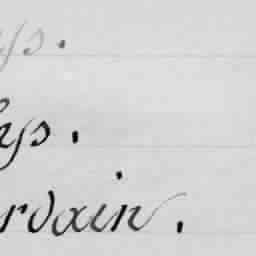 ys.
hys.
rdain.